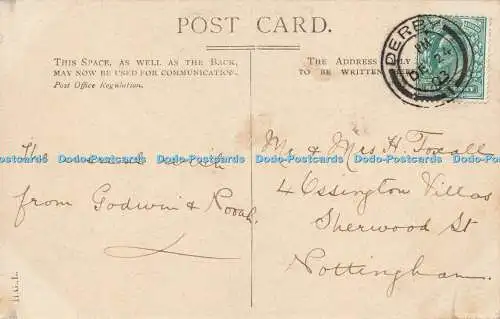 POST CARD.
THIS SPACE, AS WELL AS THE BACK,
MAY NOW BE USED FOR COMMUNICATION.
Post Office Regulation.
THE ADDRESS ONLY
TO BE WRITTEN
DERBY
PM
DE 24
Mr & Mrs H. Foxall
4 Essington Villas
Sherwood St
Nottingham.
The with
from Godwin &
Dodo-Postcards Dodo-Postcards Dodo-Postcards Dodo-Postcards Dodo-Postcards Dodo-Postcards